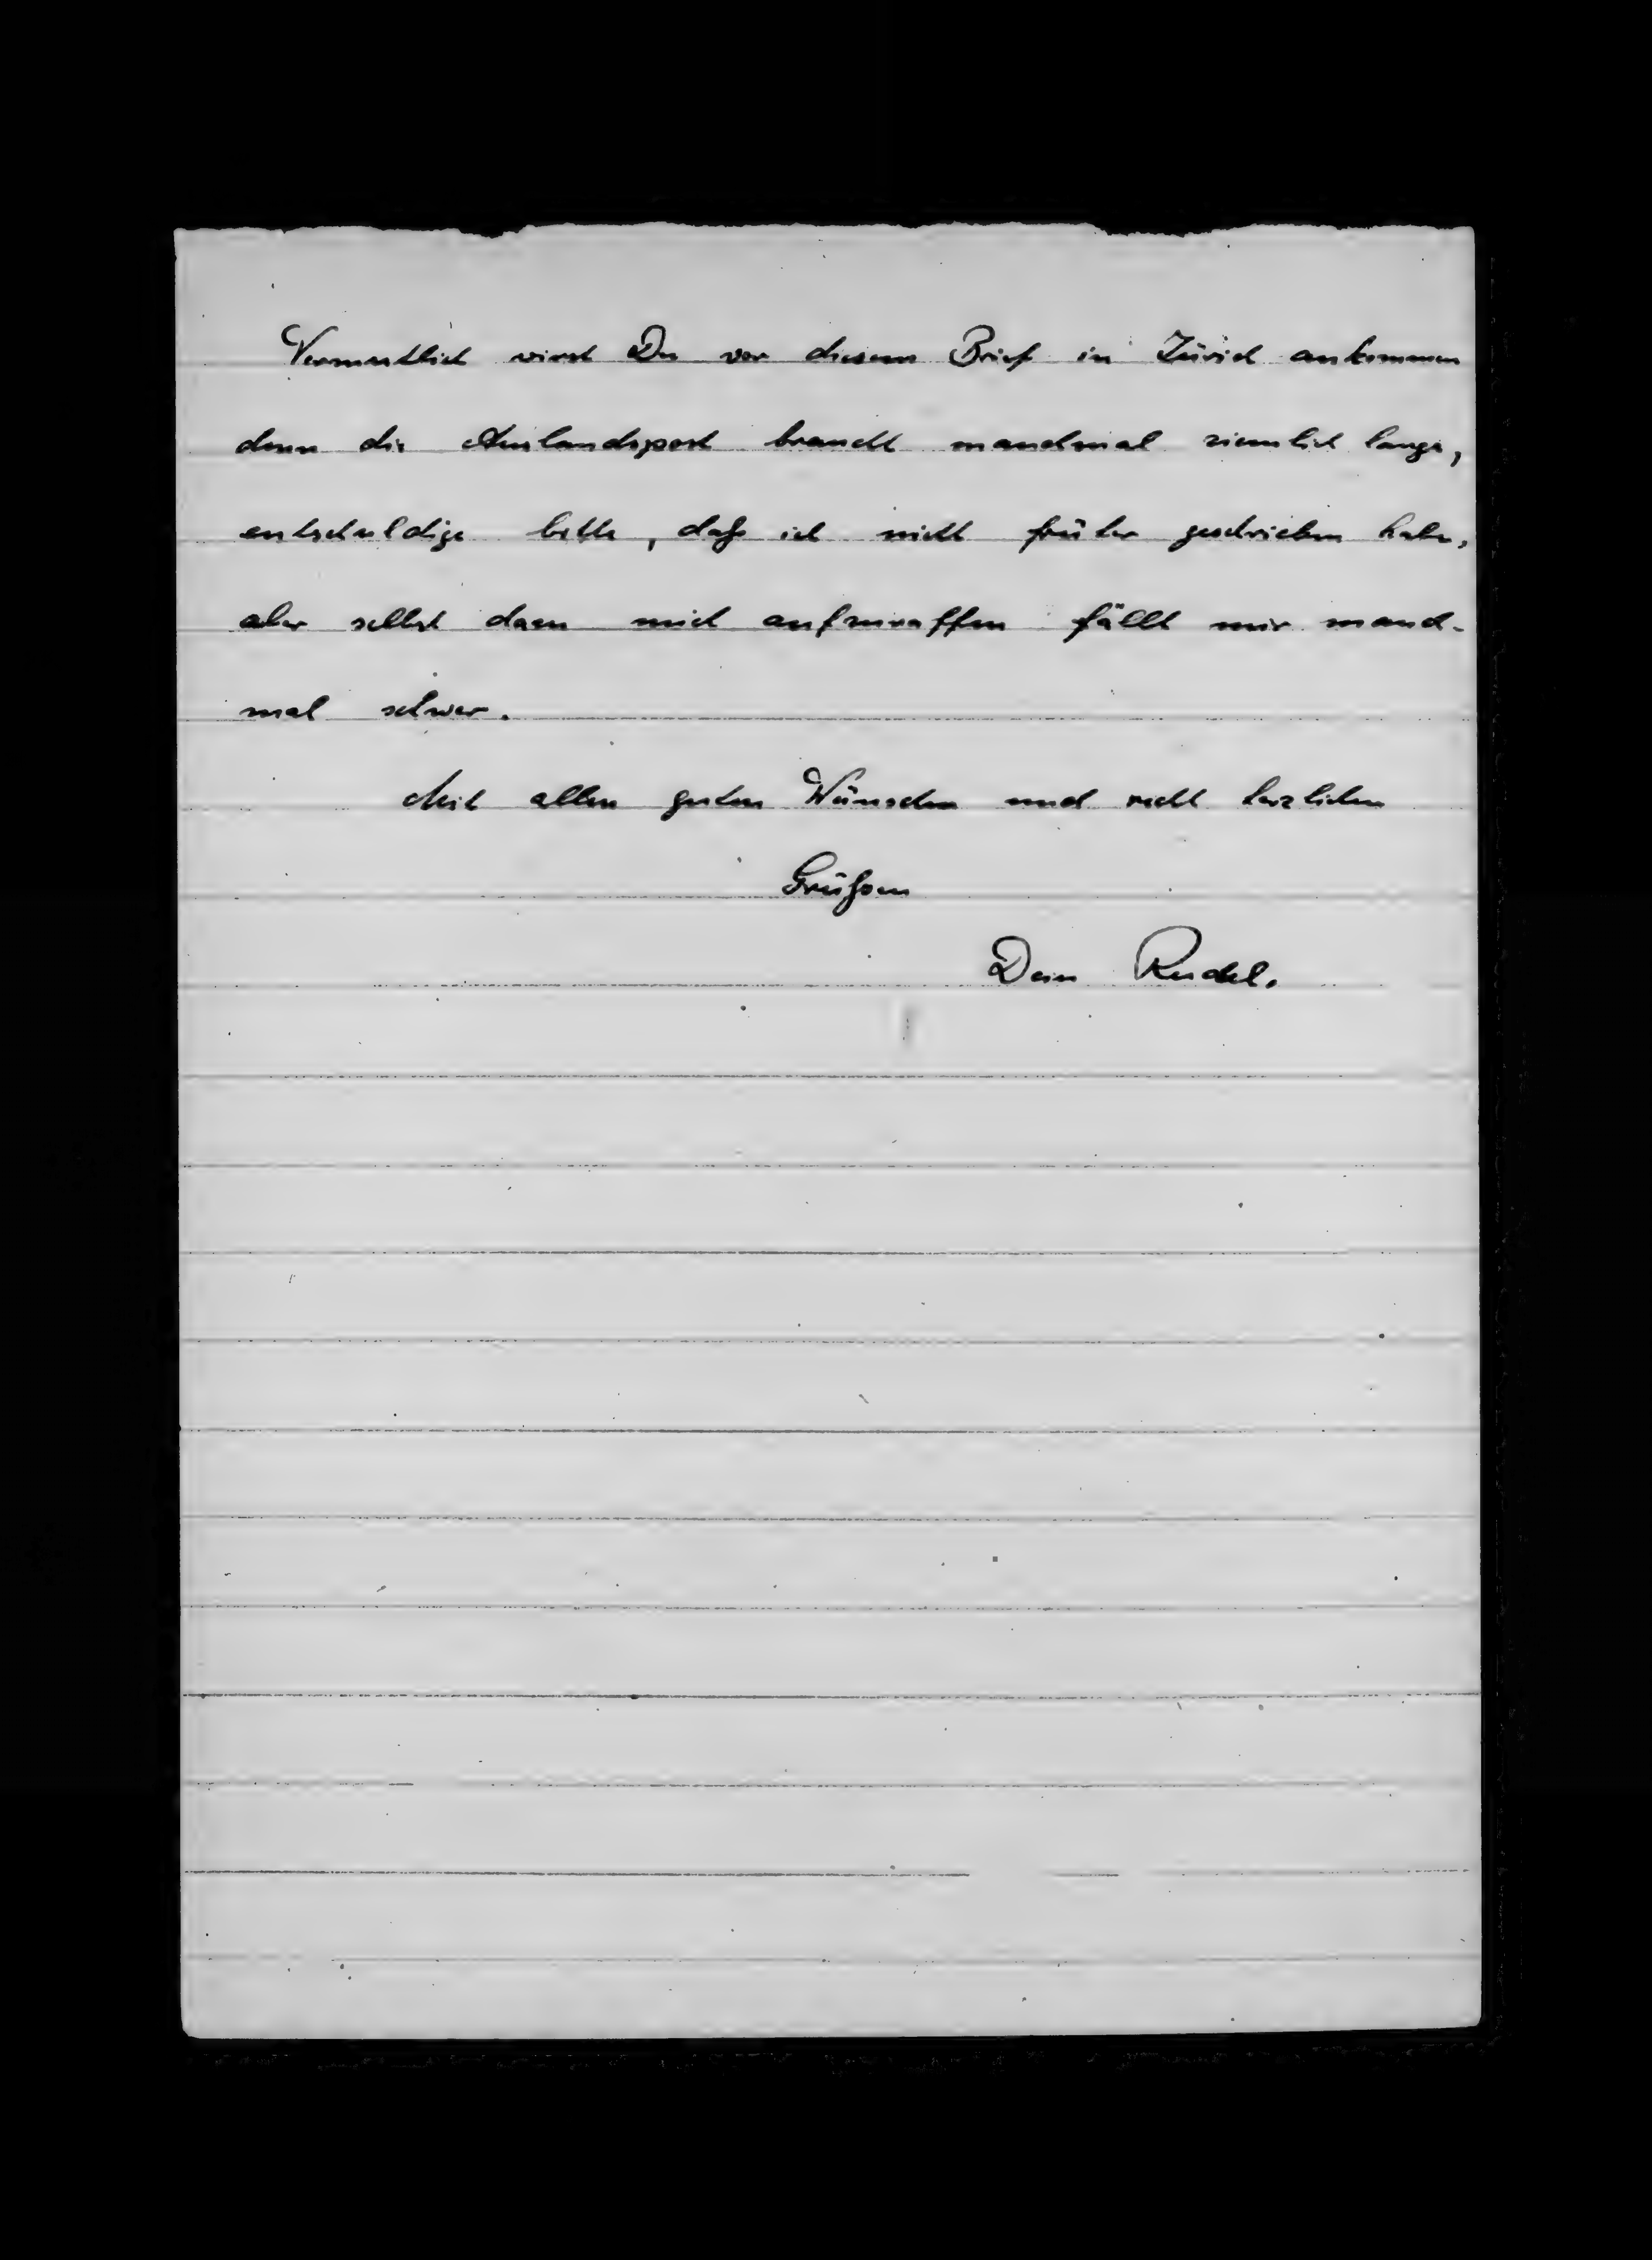 Vermutlich wirst Du vor diesem Brief in Zürich ankommen
denn die Auslandspost braucht manchmal ziemlich lange,
entschuldige bitte, daß ich nicht früher geschrieben habe,
aber selbst dazu mich aufzuraffen fällt mir manch-
mal schwer.
Mit allen guten Wünschen und recht herzlichen
Grüßen
Dein Rudel.